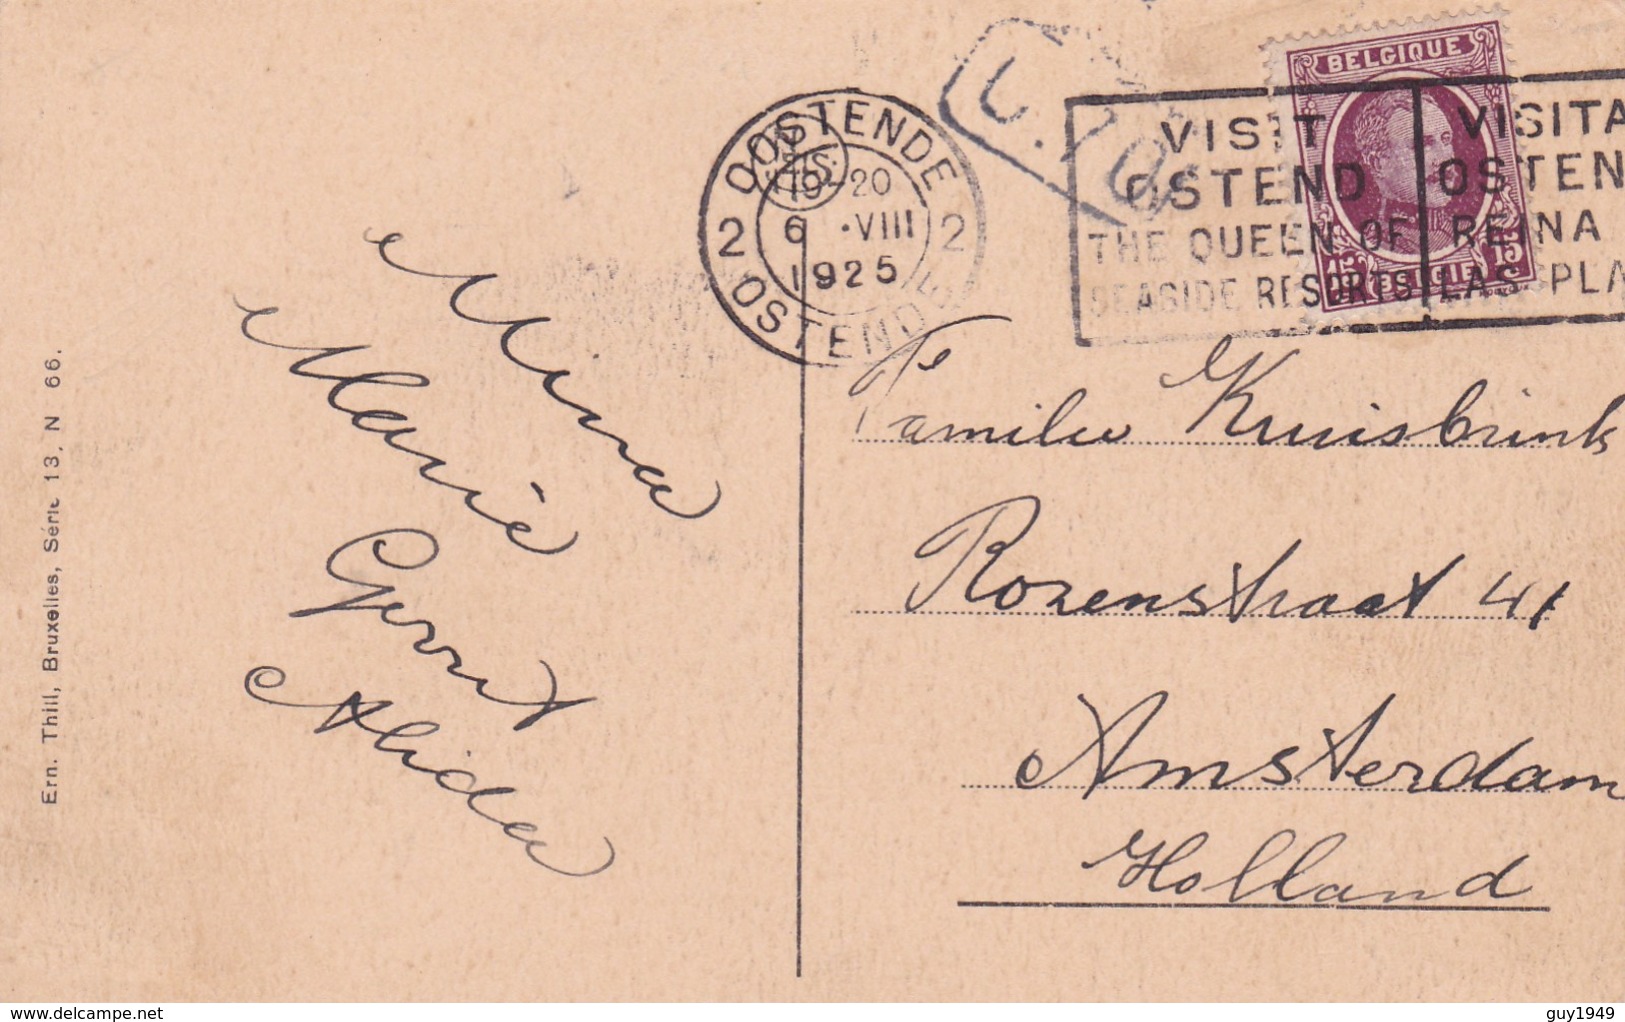 Ern. Thill, Bruxelles, Série 13, N 66.
Mina
Marie
Gerrit
Alida
OOSTENDE
19-20
2 6 ·VIII 2
1925
OSTENDE
BELGIQUE
15 15
VISIT
OSTEND
THE QUEEN OF
SEASIDE RESORTS
VISITA
OSTEN
REINA
LAS PLA
Familie Kruisbrink
Rozenstraat 41
Amsterdam
Holland
delcampe.net
guy1949